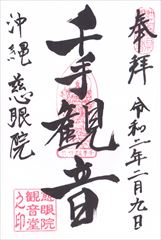 奉拝
令和二年二月九日
千手観音
沖縄 慈眼院
慈眼院
観音堂
之印